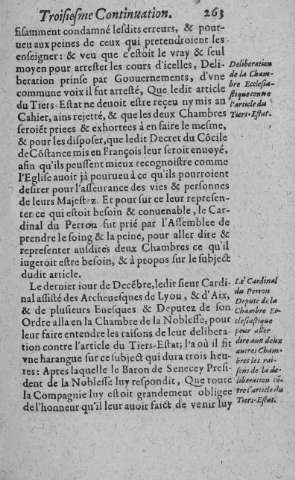 Troisiesme Continuation. 263
fisamment condamné lesdits erreurs, & pour-
ueu aux peines de ceux qui pretendroient les
enseigner: & veu que c'estoit le vray & seul
moyen pour arrester les cours d'icelles, Deli-
beration prinse par Gouuernements, d'vne
commune voix il fut arresté, Que ledit article
du Tiers-Estat ne deuoit estre reçeu ny mis au
Cahier, ains rejetté, & que les deux Chambres
seroiẽt priees & exhortees à en faire le mesme,
& pour les disposer, que ledit Decret du Cõcile
de Cõstance mis en François leur seroit enuoyé,
afin qu'ils peussent mieux recognoistre comme
l'Eglise auoit jà pourueu à ce qu'ils pourroient
desirer pour l'asseurance des vies & personnes
de leurs Majestez. Et pour sur ce leur represen-
ter ce qui estoit besoin & conuenable, le Car-
dinal du Perron fut prié par l'Assemblee de
prendre le soing & la peine, pour aller dire &
representer ausdites deux Chambres ce qu'il
iugeroit estre besoin, & à propos sur le subject
dudit article.
Le dernier jour de Decẽbre, ledit sieur Cardi-
nal assisté des Archeuesques de Lyon, & d'Aix,
& de plusieurs Euesques & Deputez de son
Ordre alla en la Chambre de la Noblesse, pour
leur faire entendre les raisons de leur delibera-
tion contre l'article du Tiers-Estat; là où il fit
vne harangue sur ce subject qui dura trois heu-
res: Apres laquelle le Baron de Senecey Presi-
dent de la Noblesse luy respondit, Que toute
la Compagnie luy estoit grandement obligee
de l'honneur qu'il leur auoit faict de venir luy
Deliberation
de la Cham-
bre Ecclesia-
stique contre
l'article du
Tiers-Estat.
Le Cardinal
du Perron
Deputé de la
Chambre Ec-
clesiastique
pour aller
dire aux deux
autres Cham-
bres les rai-
sons de la de-
liberation cõ-
tre l'article du
Tiers-Estat.